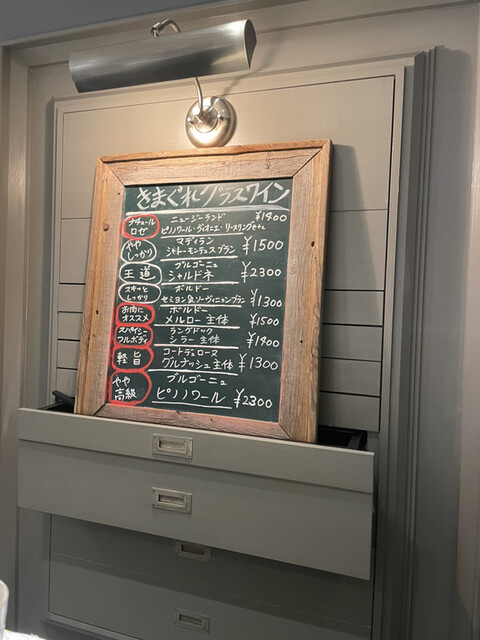 きまぐれグラスワイン
ナチュール ニュージーランド ¥1900
ロゼ ピノノワール・ヴィオニエ・リースリングetc
やや マディラン ¥1500
しっかり シャトーモンテュスブラン
王道 ブルゴーニュ ¥2300
シャルドネ
スキッと ボルドー ¥1300
しっかり セミヨン&ソーヴィニョンブラン
お肉に ボルドー ¥1500
オススメ メルロー主体
スパイシー ラングドック ¥1900
フルボディ シラー主体
軽旨 コートデュローヌ ¥1300
グルナッシュ主体
やや ブルゴーニュ
高級 ピノノワール ¥2300